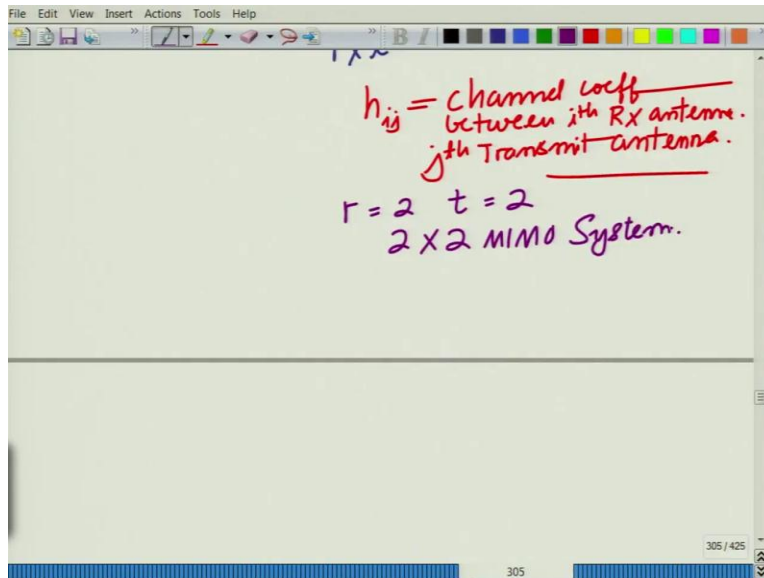 File Edit View Insert Actions Tools Help
B I
h_ij = channel coeff
between ith Rx antenna.
jth Transmit antenna.
r = 2 t = 2
2 X 2 MIMO System.
305 / 425
305